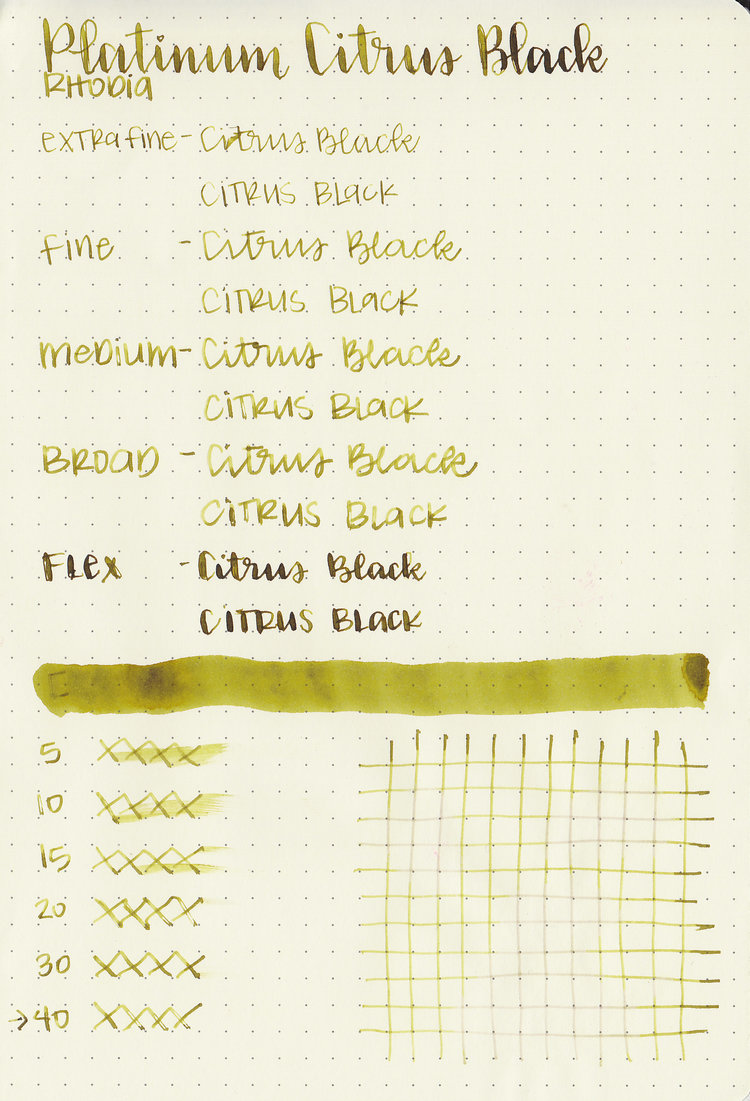 Platinum Citrus Black
RHODia
exTRa fine - Citrus Black
CiTRUS BLacK
fine - Citrus Black
CiTRUS BLacK
meDium - Citrus Black
CiTRUS BLacK
BROaD - Citrus Black
CiTRUS BLacK
FLex - Citrus Black
CiTRUS BLacK
5 XXXX
10 XXXX
15 XXXX
20 XXXX
30 XXXX
→40 XXXX